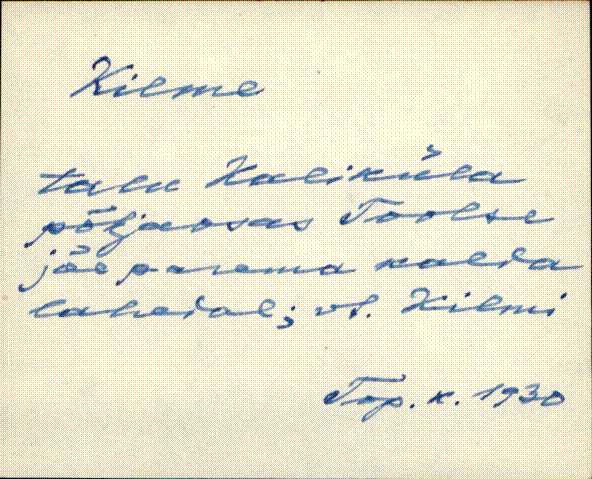 Kilme
talu Kaliküla
põhjaosas Toolse
jõe parema kalda
lähedal; vt. Kilmi
Top. k. 1930